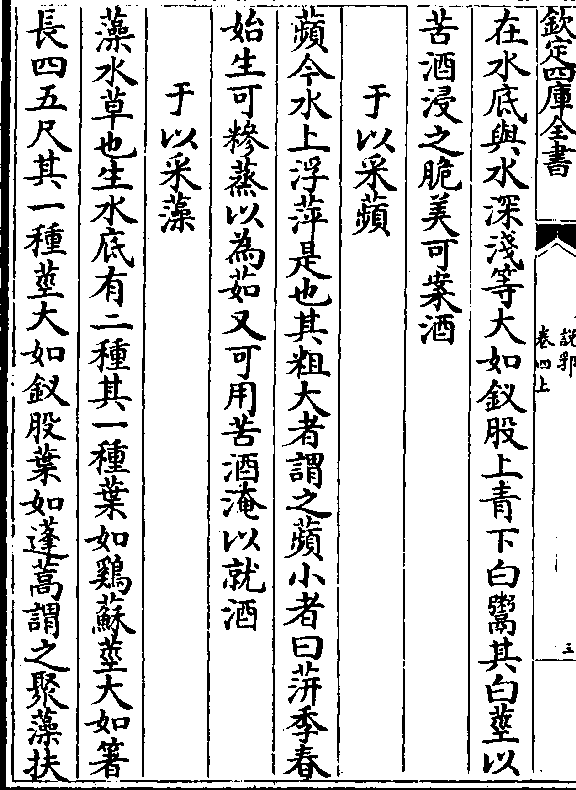 欽定四庫全書
說郛
卷四上
三
在水底與水深淺等大如釵股上青下白鬻其白莖以
苦酒浸之脆美可案酒
于以采蘋
蘋今水上浮萍是也其粗大者謂之蘋小者曰蓱季春
始生可糝蒸以為茹又可用苦酒淹以就酒
于以采藻
藻水草也生水底有二種其一種葉如鷄蘇莖大如箸
長四五尺其一種莖大如釵股葉如蓬蒿謂之聚藻扶